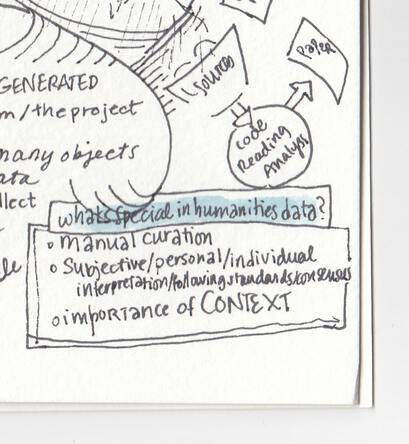 GENERATED
m/the project
many objects
ata
llect
SOURCES
PAPER
Code
Reading
Analysis
whats special in humanities data?
manual curation
Subjective/personal/individual
interpretation/following standards/consensus
importance of CONTEXT